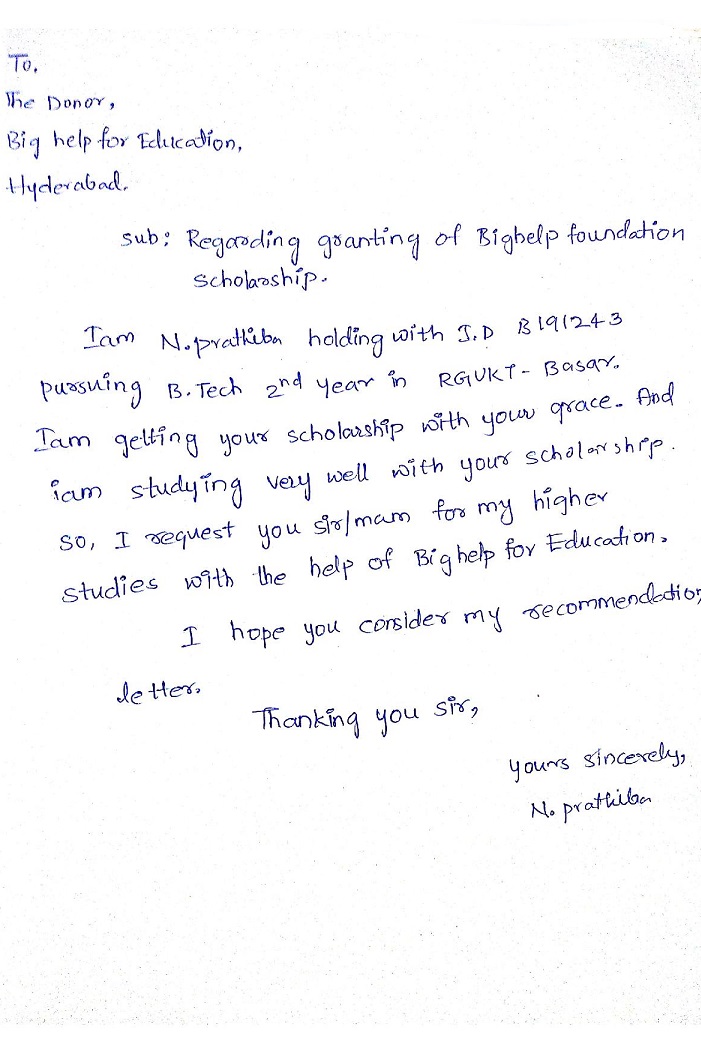 To,
The Donor,
Big help for Education,
Hyderabad.
Sub: Regarding granting of Bighelp foundation
scholarship.
Iam N.prathiba holding with I.D B191243
pursuing B.Tech 2nd year in RGUKT- Basar.
Iam getting your scholarship with your grace. And
iam studying very well with your scholarship.
So, I request you sir/mam for my higher
studies with the help of Big help for Education.
I hope you consider my recommendation
letter.
Thanking you sir,
yours sincerely,
N. prathiba